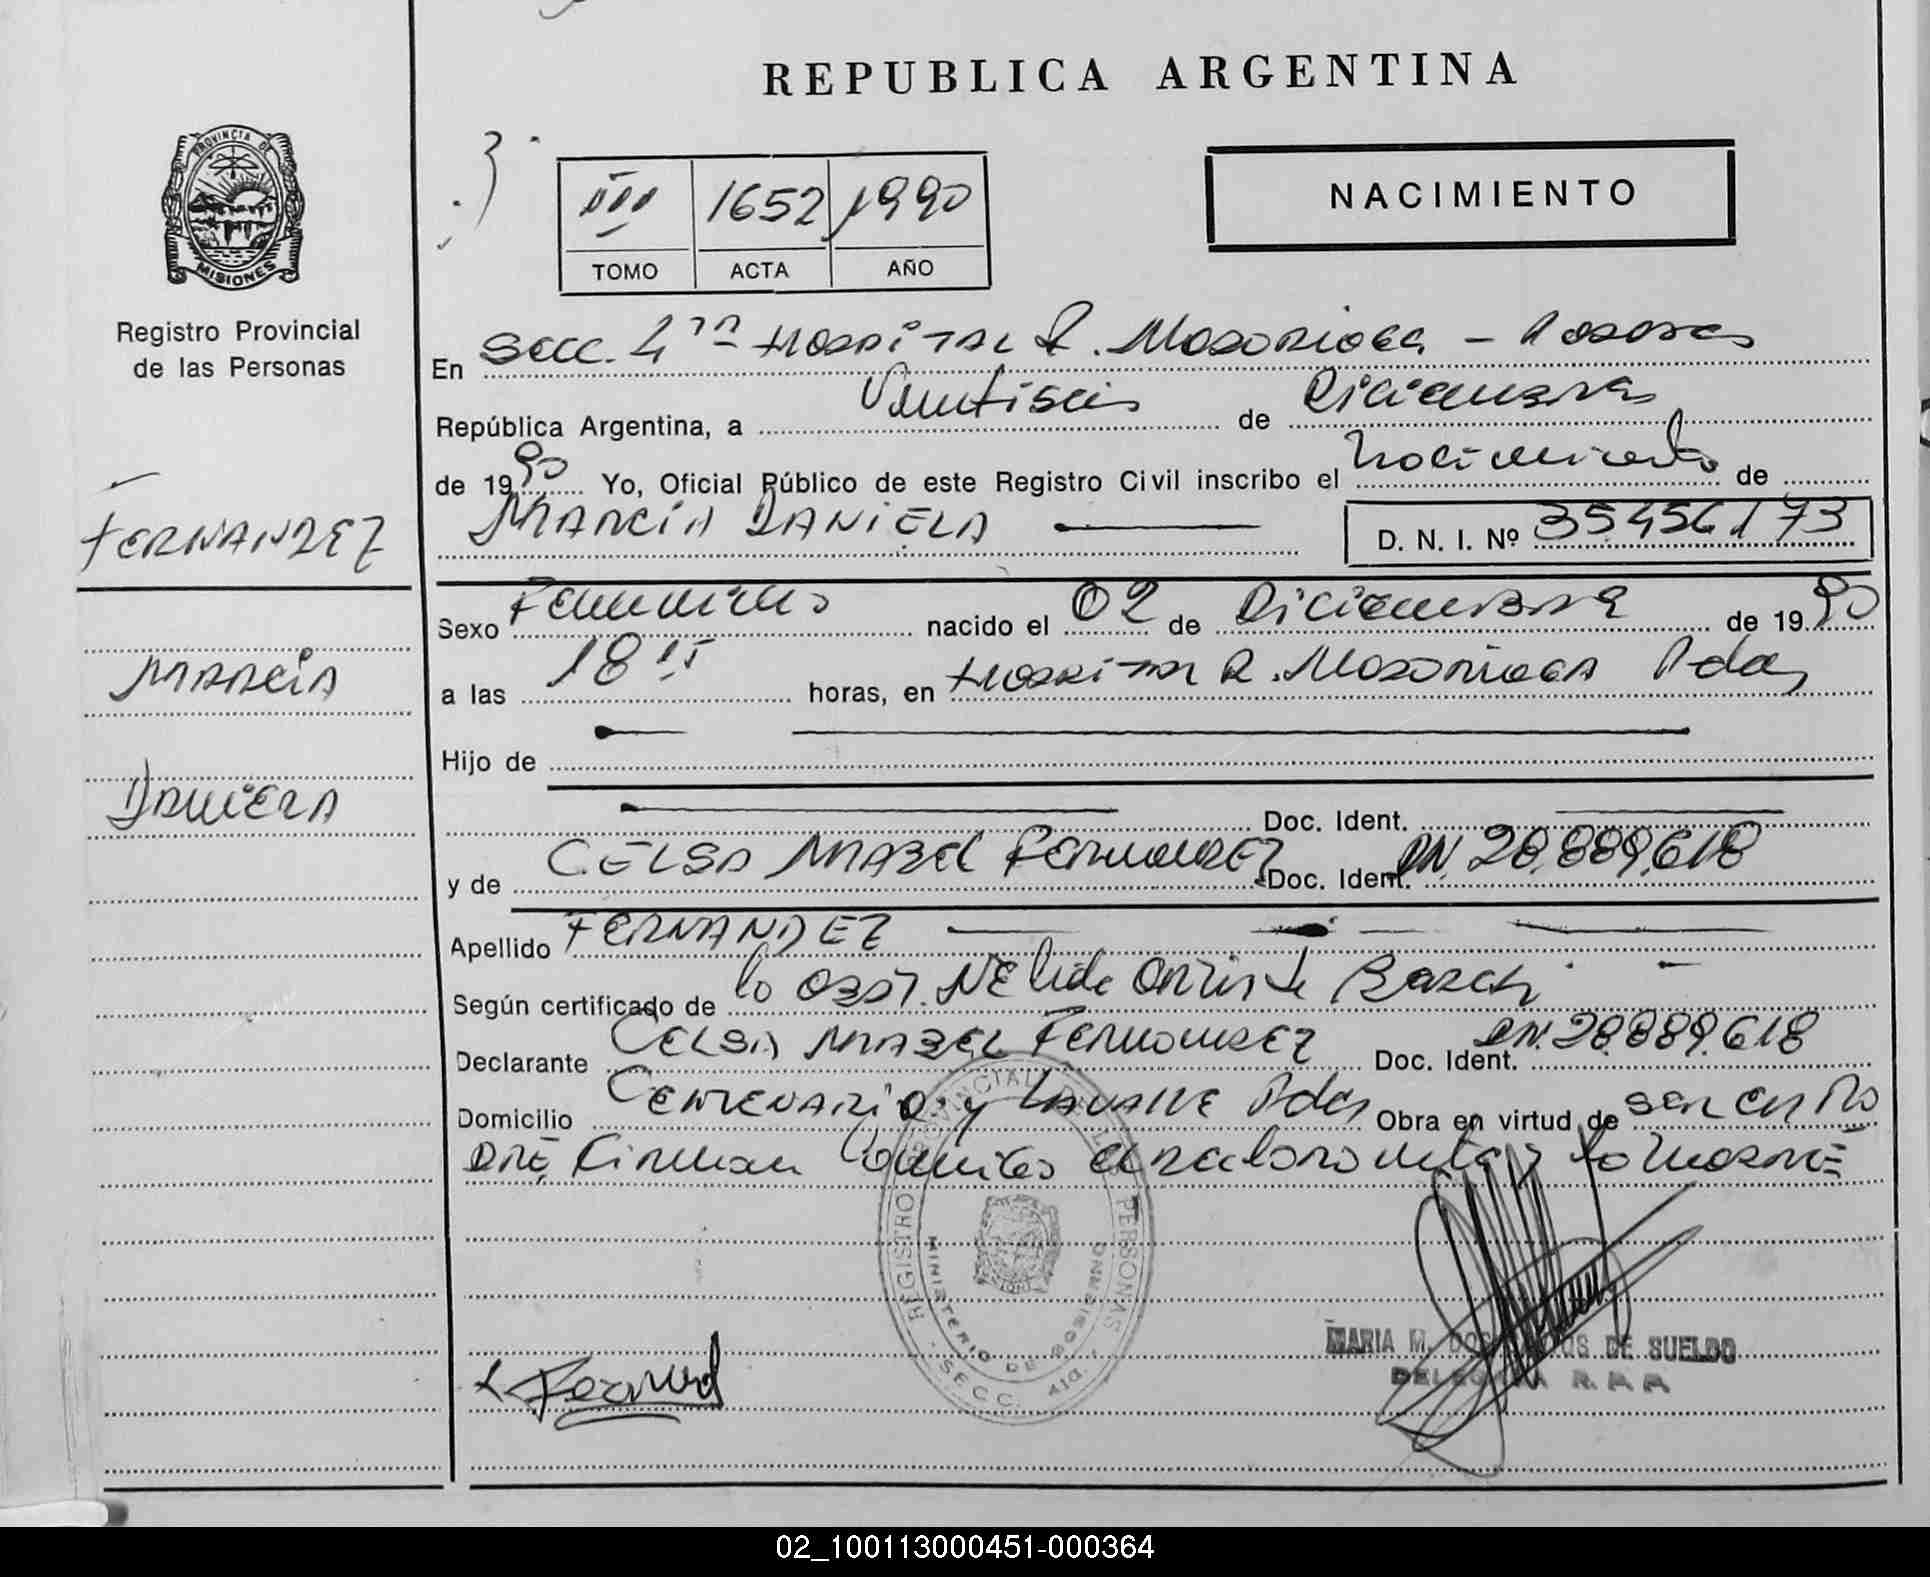 REPUBLICA ARGENTINA
PROVINCIA DE
MISIONES
Registro Provincial
de las Personas
III 1652 1990
TOMO ACTA AÑO
NACIMIENTO
En Secc. 4ta Hospital R. Madariaga - Posadas
República Argentina, a Veintiseis de Diciembre
de 1990 Yo, Oficial Público de este Registro Civil inscribo el Nacimiento de
MARCIA DANIELA D. N. I. Nº 35456173
FERNANDEZ
MARCIA
DANIELA
Sexo Femenino nacido el 02 de Diciembre de 1990
a las 18 15 horas, en Hospital R. Madariaga Pdas
Hijo de
Doc. Ident.
y de CELSA MABEL FERNANDEZ Doc. Ident. DN. 28.889.618
Apellido FERNANDEZ
Según certificado de la Obst. Nelida
Declarante CELSA MABEL FERNANDEZ Doc. Ident. DN. 28.889.618
Domicilio Centenario y Lavalle Pdas Obra en virtud de ser
Firman
REGISTRO PROVINCIAL DE LAS PERSONAS
MINISTERIO DE GOBIERNO
SECC. 4ta.
MARIA M. DOS DE SUELDO
DELEGADA
02_100113000451-000364